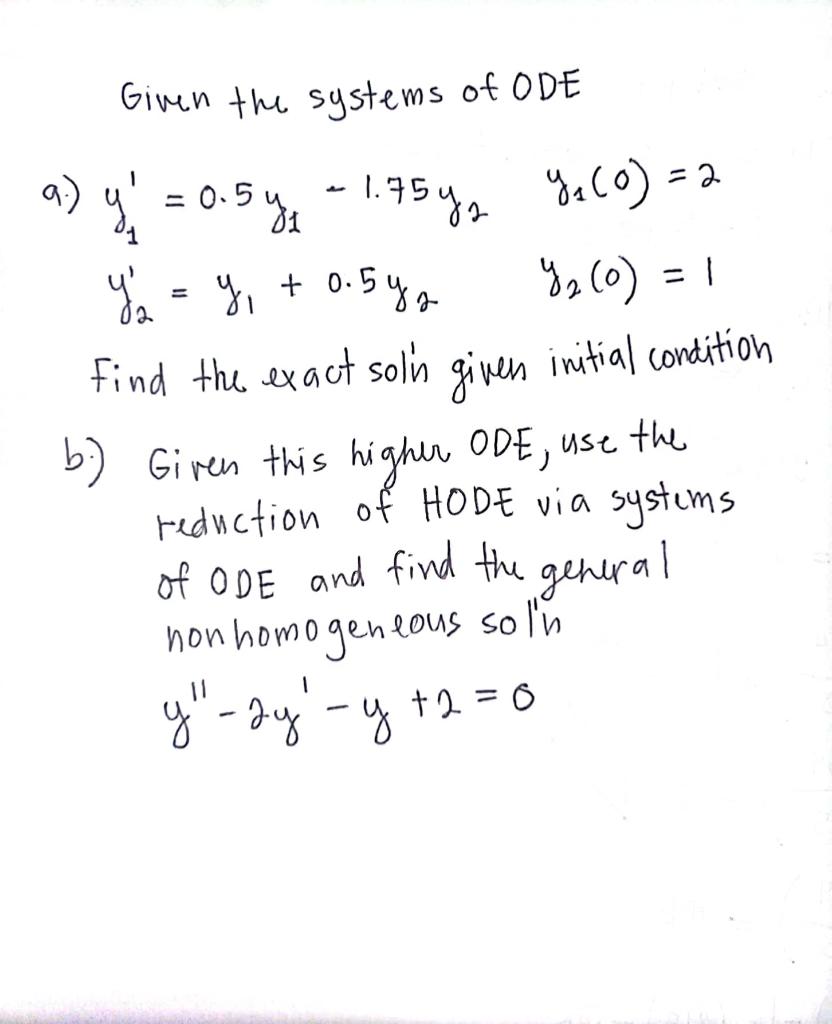 Given the systems of ODE
a.) y₁' = 0.5y₁ - 1.75y₂ y₁(0) = 2
y₂' = y₁ + 0.5y₂ y₂(0) = 1
Find the exact sol'n given initial condition
b.) Given this higher ODE, use the
reduction of HODE via systems
of ODE and find the general
nonhomogeneous sol'n
y'' - 2y' - y + 2 = 0